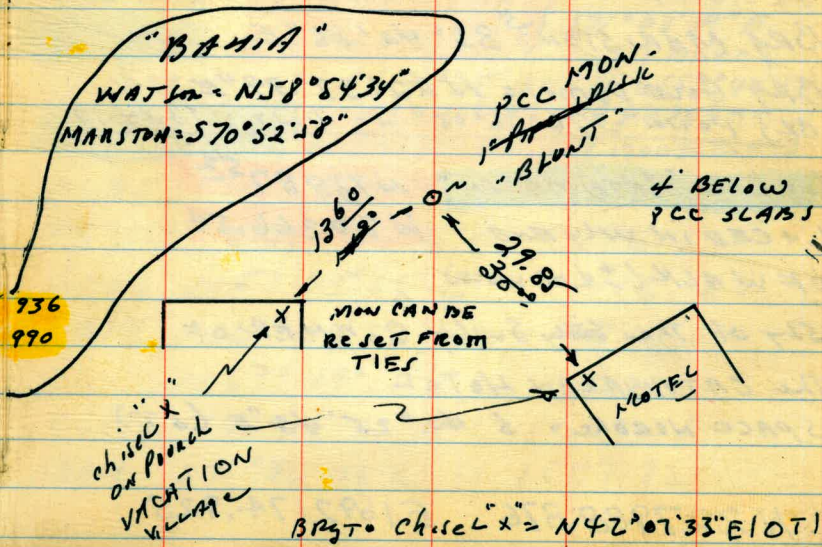 "BAHIA"
WATSON = N58°54'34"
MARSTON = S70°52'58"
PCC MON.
"BLUNT"
4' BELOW
PCC SLABS
1360
29.85
30.00
936
990
X
MON CAN BE
RESET FROM
TIES
X
MOTEL
chisel "X"
ON Pourch
VACATION
VILLAGE
BRg To Chisel "X" = N42°07'33"E (OT)